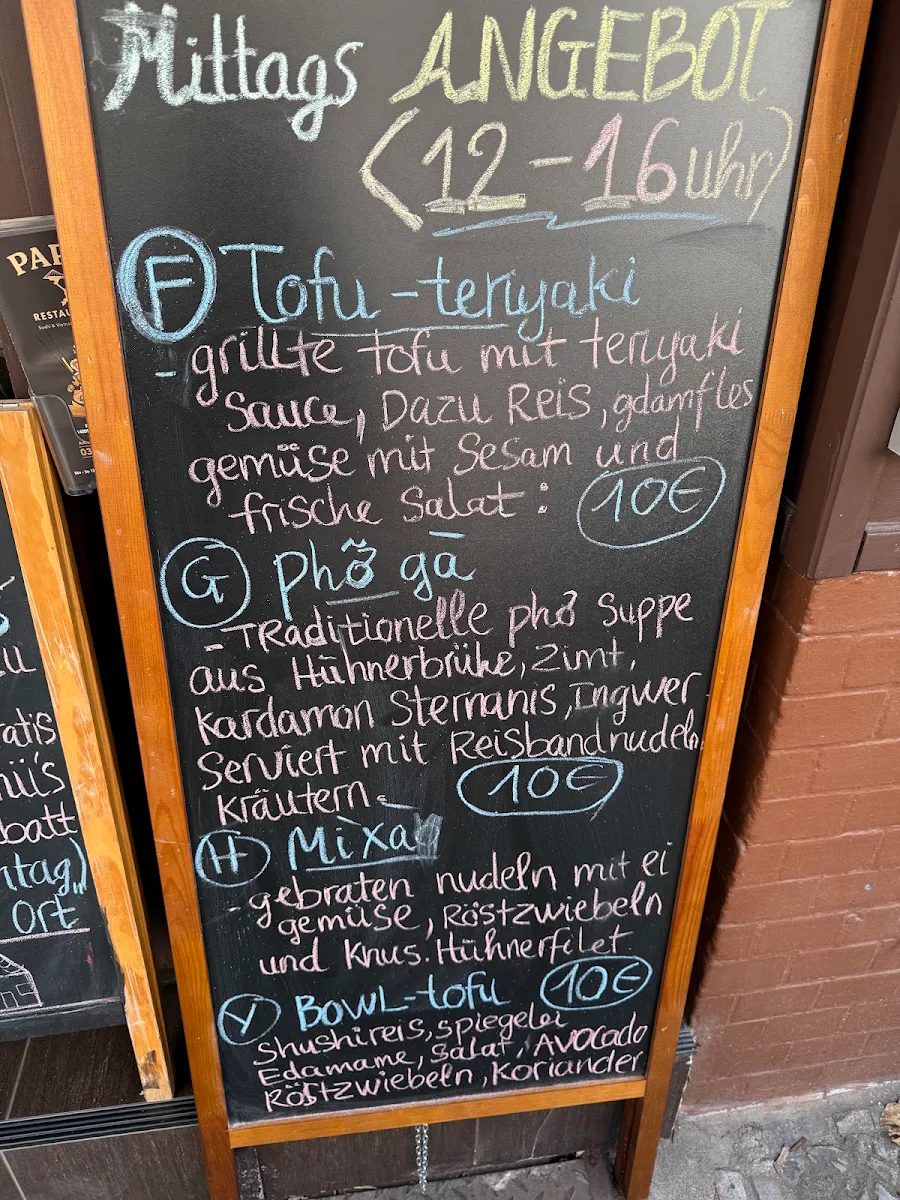 Mittags ANGEBOT
(12-16 uhr)
F Tofu-teriyaki
- grillte tofu mit teriyaki
Sauce, Dazu Reis, gdämftes
gemüse mit Sesam und
frische Salat: 10€
G phỡ gà
- Traditionelle phở Suppe
aus Hühnerbrühe, Zimt,
kardamon Sternanis, Ingwer
Serviert mit Reisbandnudeln
Kräutern. 10€
H Mixà
- gebraten nudeln mit ei
gemüse, Röstzwiebeln
und Knus. Hühnerfilet
Y BOWL-tofu 10€
Shushireis, spiegelei
Edamame, Salat, Avocado
Röstzwiebeln, Koriander
ratis
abatt
ntag)
ORT